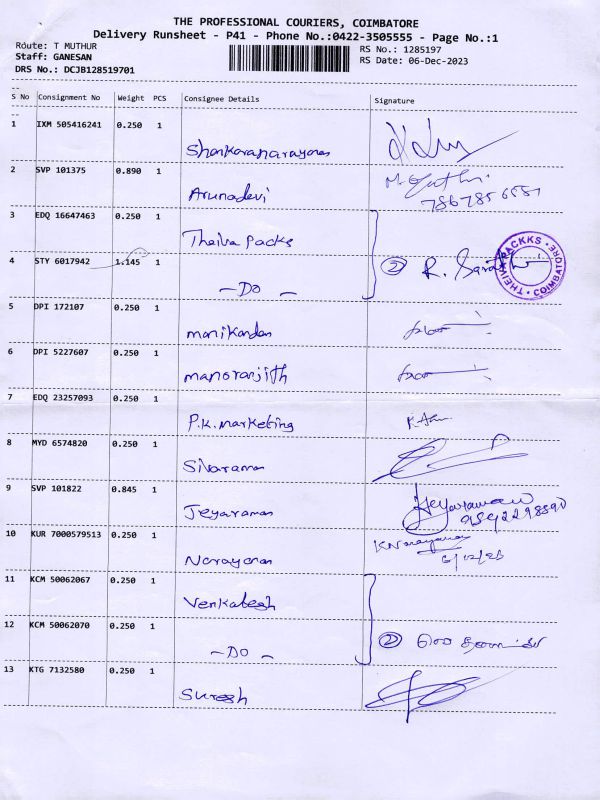 THE PROFESSIONAL COURIERS, COIMBATORE
Delivery Runsheet - P41 - Phone No.:0422-3505555 - Page No.:1
Route: T MUTHUR
RS No.: 1285197
Staff: GANESAN
RS Date: 06-Dec-2023
DRS No.: DCJB128519701
S No Consignment No Weight PCS Consignee Details Signature
1 IXM 505416241 0.250 1
Shankaranarayanan
2 SVP 101375 0.890 1
Arunadevi
3 EDQ 16647463 0.250 1
Theiva packs
4 STY 6017942 1.145 1
- Do -
② R.
THEIVA PACKKS
COIMBATORE
5 DPI 172107 0.250 1
manikandan
6 DPI 5227607 0.250 1
manoranjith
7 EDQ 23257093 0.250 1
P.K. marketing
8 MYD 6574820 0.250 1
Sivaraman
9 SVP 101822 0.845 1
Jeyaraman
Jeyaraman
10 KUR 7000579513 0.250 1
Narayanan
K Narayanan
6/12/23
11 KCM 50062067 0.250 1
Venkatesh
12 KCM 50062070 0.250 1
- Do -
②
13 KTG 7132580 0.250 1
Suresh